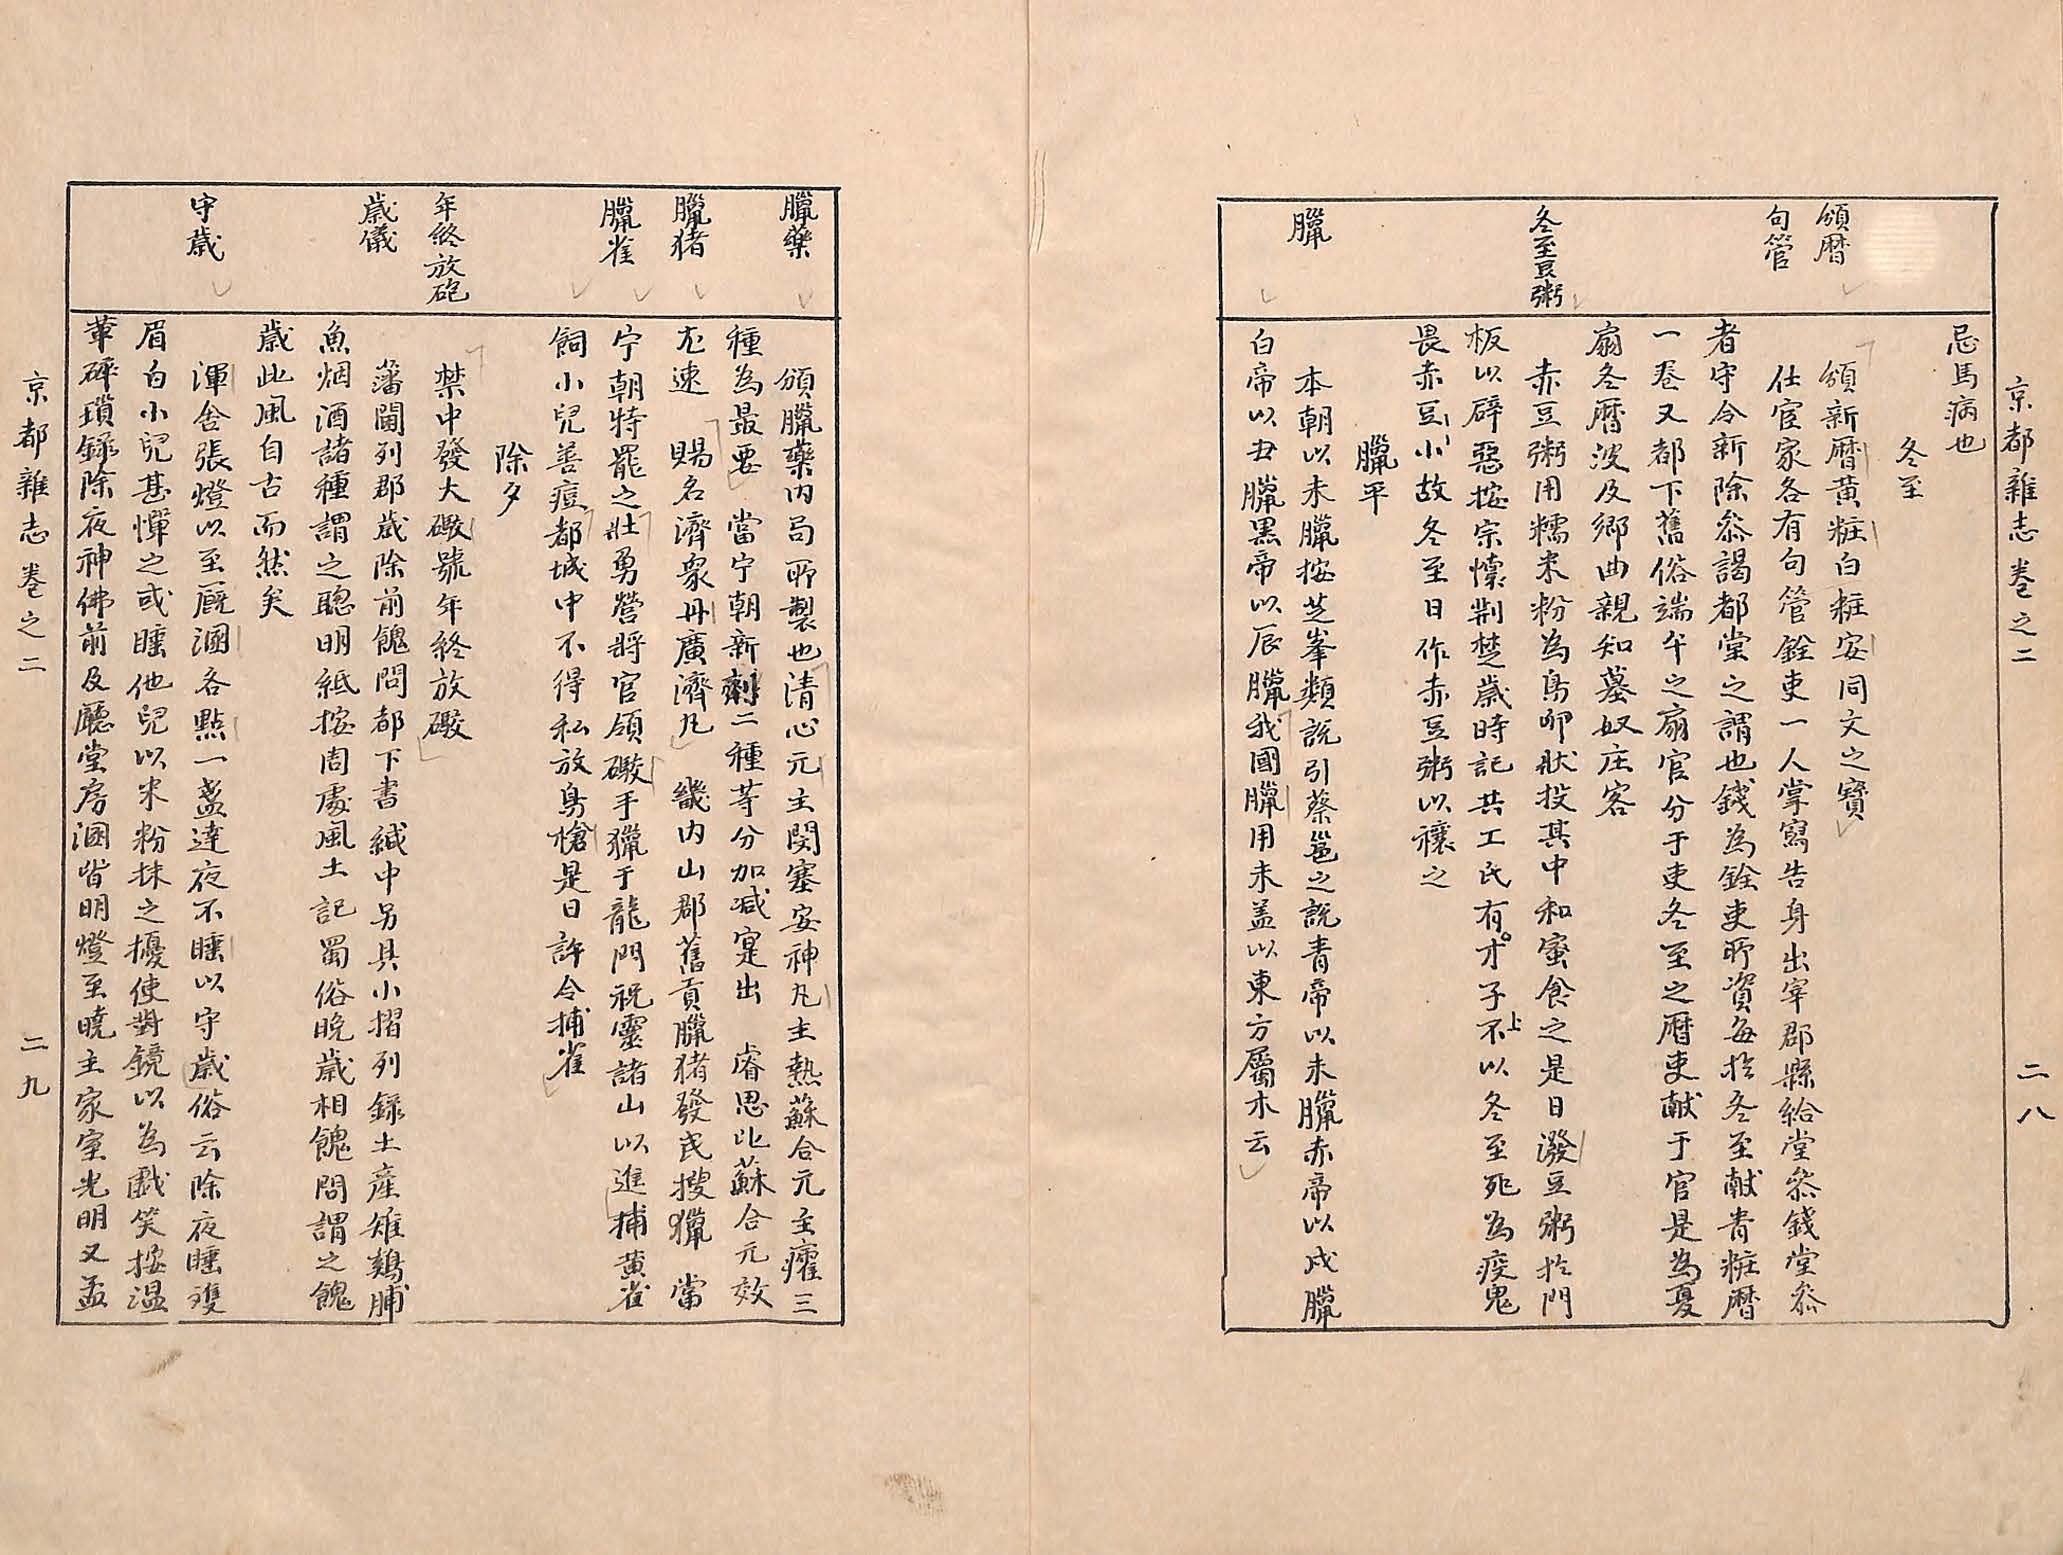 京都雜志 卷之二
二八
頒曆
句管
冬至豆粥
臘
忌馬病也
冬至
頒新曆黃粧白粧安同文之寶
仕宦家各有句管銓吏一人掌寫告身出宰郡縣給堂叅錢堂叅
者守令新除叅謁都堂之謂也錢為銓吏所資每於冬至獻青粧曆
一卷又都下舊俗端午之扇官分于吏冬至之曆吏献于官是為夏
扇冬曆波及鄉曲親知墓奴庄客
赤豆粥用糯米粉為鳥卵狀投其中和蜜食之是日潑豆粥於門
板以辟惡按宗懔荆楚歲時記共工氏有才子不以冬至死為疫鬼
上
畏赤豆小故冬至日作赤豆粥以禳之
臘平
本朝以未臘按芝峯類說引蔡邕之說青帝以未臘赤帝以戌臘
白帝以丑臘黑帝以辰臘我國臘用未盖以東方屬木云
臘藥
臘猪
臘雀
年終放砲
歲儀
守歲
頒臘藥內局所製也清心元主閔塞安神凡主熱蘇合元主癨三
種為最要 當宁朝新劑二種等分加减寔出 睿思比蘇合元效
尤速 賜名濟衆丹廣濟凡 畿內山郡舊貢臘猪發民搜獵 當
宁朝特罷之壯勇營將官領礮手獵于龍門祝靈諸山以進捕黃雀
飼小兒善痘都城中不得私放鳥槍是日許令捕雀
除夕
禁中發大礮號年終放礮
藩閫列郡歲除前餽問都下書緘中另具小摺列錄土產雉鷄脯
魚烟酒諸種謂之聰明紙按周處風土記蜀俗晚歲相餽問謂之餽
歲此風自古而然矣
渾舍張燈以至厩溷各點一盞達夜不睡以守歲俗云除夜睡雙
眉白小兒甚憚之或睡他兒以米粉抹之擾使對鏡以為戱笑按温
革碎瑣錄除夜神佛前及廳堂房溷皆明燈至曉主家室光明又孟
京都雜志 卷之二
二九